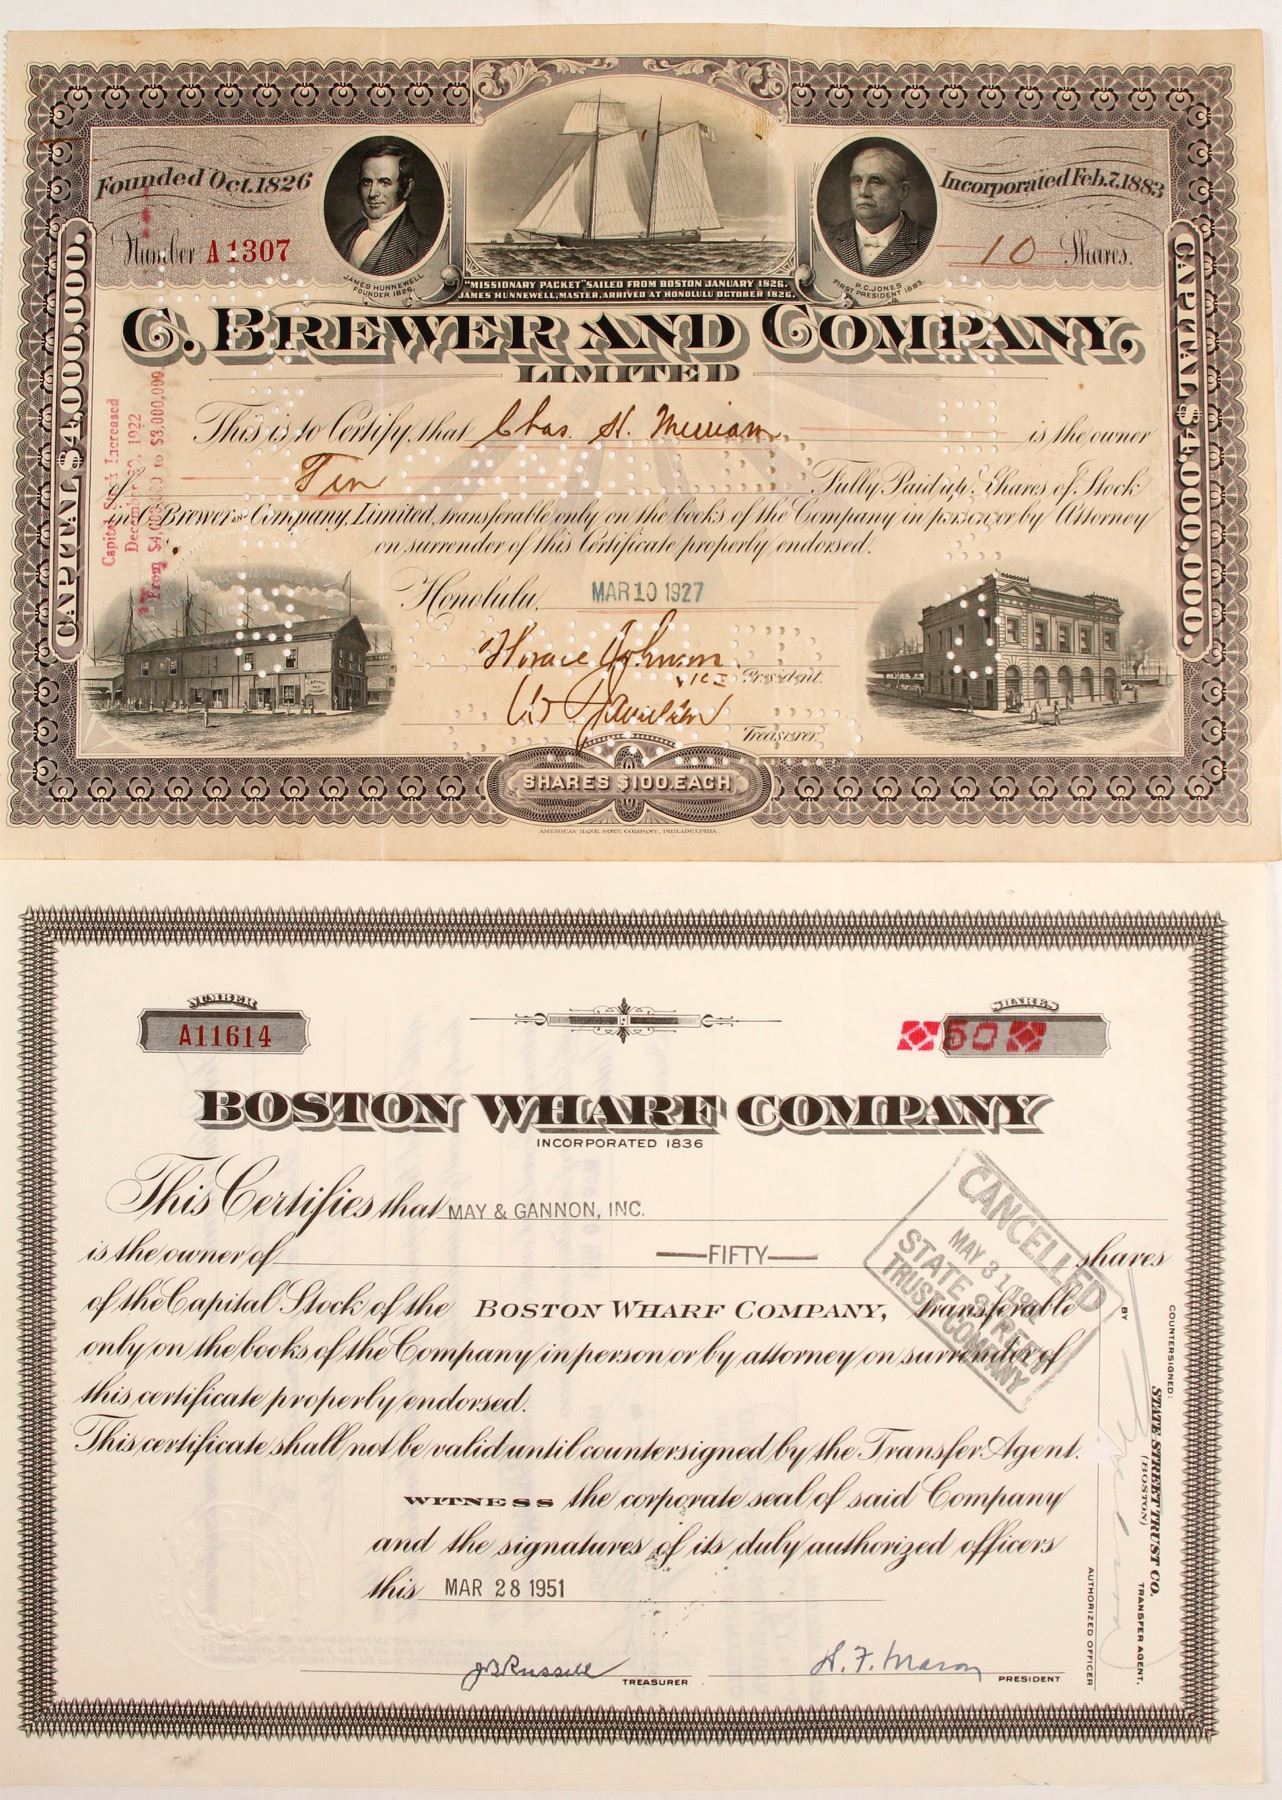 Founded Oct. 1826
Incorporated Feb. 7, 1883
Number A 1307
10 Shares.
JAMES HUNNEWELL
FOUNDER 1826
"MISSIONARY PACKET" SAILED FROM BOSTON JANUARY 1826.
JAMES HUNNEWELL, MASTER, ARRIVED AT HONOLULU OCTOBER 1826.
P. C. JONES
FIRST PRESIDENT 1883.
CAPITAL $4,000,000.
CAPITAL $4,000,000.
C. BREWER AND COMPANY,
LIMITED
Capital Stock Increased
December 1922
From $4,000,000 to $8,000,000
This is to Certify, that Chas. H. Merriam is the owner
of Ten Fully Paid up Shares of Stock
in C. Brewer and Company, Limited, transferable only on the books of the Company in person or by Attorney
on surrender of this Certificate properly endorsed.
Honolulu, MAR 10 1927
Horace Johnson
vice President.
Treasurer.
SHARES $100. EACH
AMERICAN BANK NOTE COMPANY, PHILADELPHIA.
NUMBER
A11614
SHARES
50
BOSTON WHARF COMPANY
INCORPORATED 1836
This Certifies that MAY & GANNON, INC.
is the owner of —FIFTY— shares
of the Capital Stock of the BOSTON WHARF COMPANY, transferable
only on the books of the Company in person or by attorney on surrender of
this certificate properly endorsed.
This certificate shall not be valid until countersigned by the Transfer Agent.
WITNESS the corporate seal of said Company
and the signatures of its duly authorized officers
this MAR 28 1951
J B Russell TREASURER
H. F. Mason PRESIDENT
CANCELLED
MAY 31
STATE STREET
TRUST COMPANY
COUNTERSIGNED:
STATE STREET TRUST CO.
(BOSTON)
TRANSFER AGENT,
BY
AUTHORIZED OFFICER